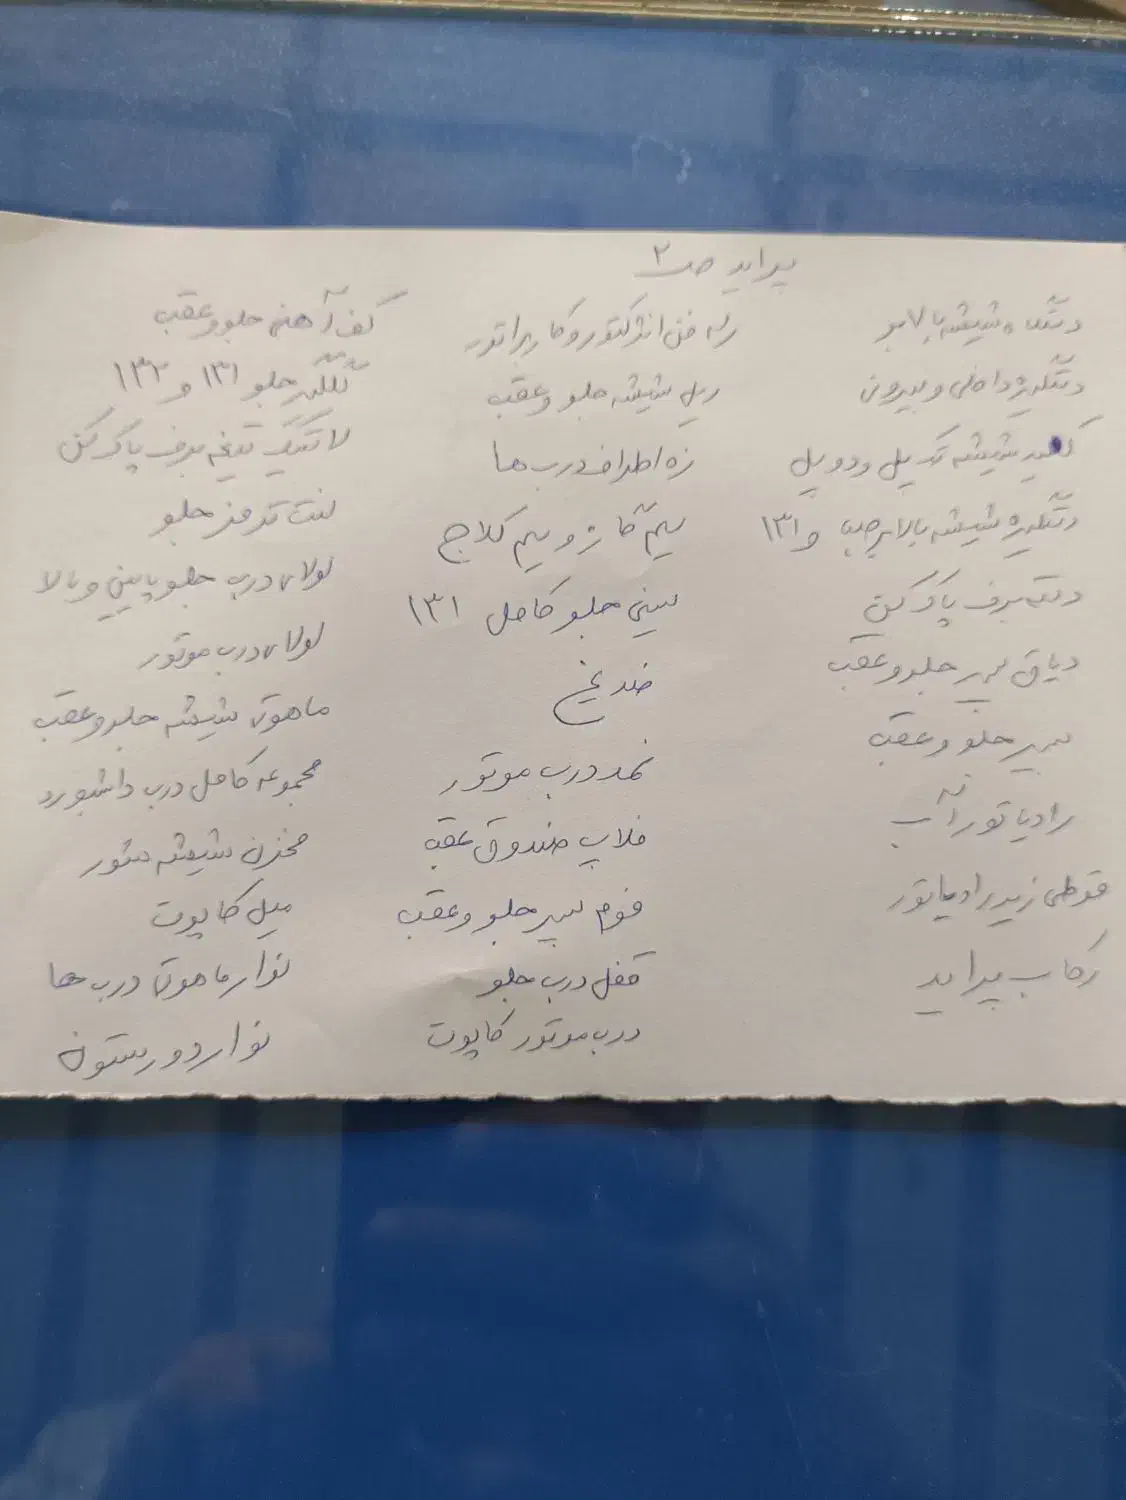 پراید ص ۲
دستگیره شیشه بالابر
دستگیره داخلی و بیرونی
کلید شیشه تک پل و دوپل
دستگیره شیشه بالابر صبا و ۱۳۱
دسته برف پاک کن
دیاق سپر جلو و عقب
سپر جلو و عقب
رادیاتور آب
قوطی زیر رادیاتور
رکاب پراید
رله فن انژکتور و کاربراتور
ریل شیشه جلو و عقب
زه اطراف درب ها
سیم گاز و سیم کلاج
سینی جلو کامل ۱۳۱
ضد یخ
نمد درب موتور
فلاپ صندوق عقب
فوم سپر جلو و عقب
قفل درب جلو
درب موتور کاپوت
کف آهنی جلو و عقب
گلگیر جلو ۱۳۱ و ۱۳۲
لاستیک تیغه برف پاک کن
لنت ترمز جلو
لولای درب جلو پایین و بالا
لولای درب موتور
ماهوتی شیشه جلو و عقب
مجموعه کامل درب داشبورد
مخزن شیشه شور
میل کاپوت
نوار ماهوتی درب ها
نوار دور ستون